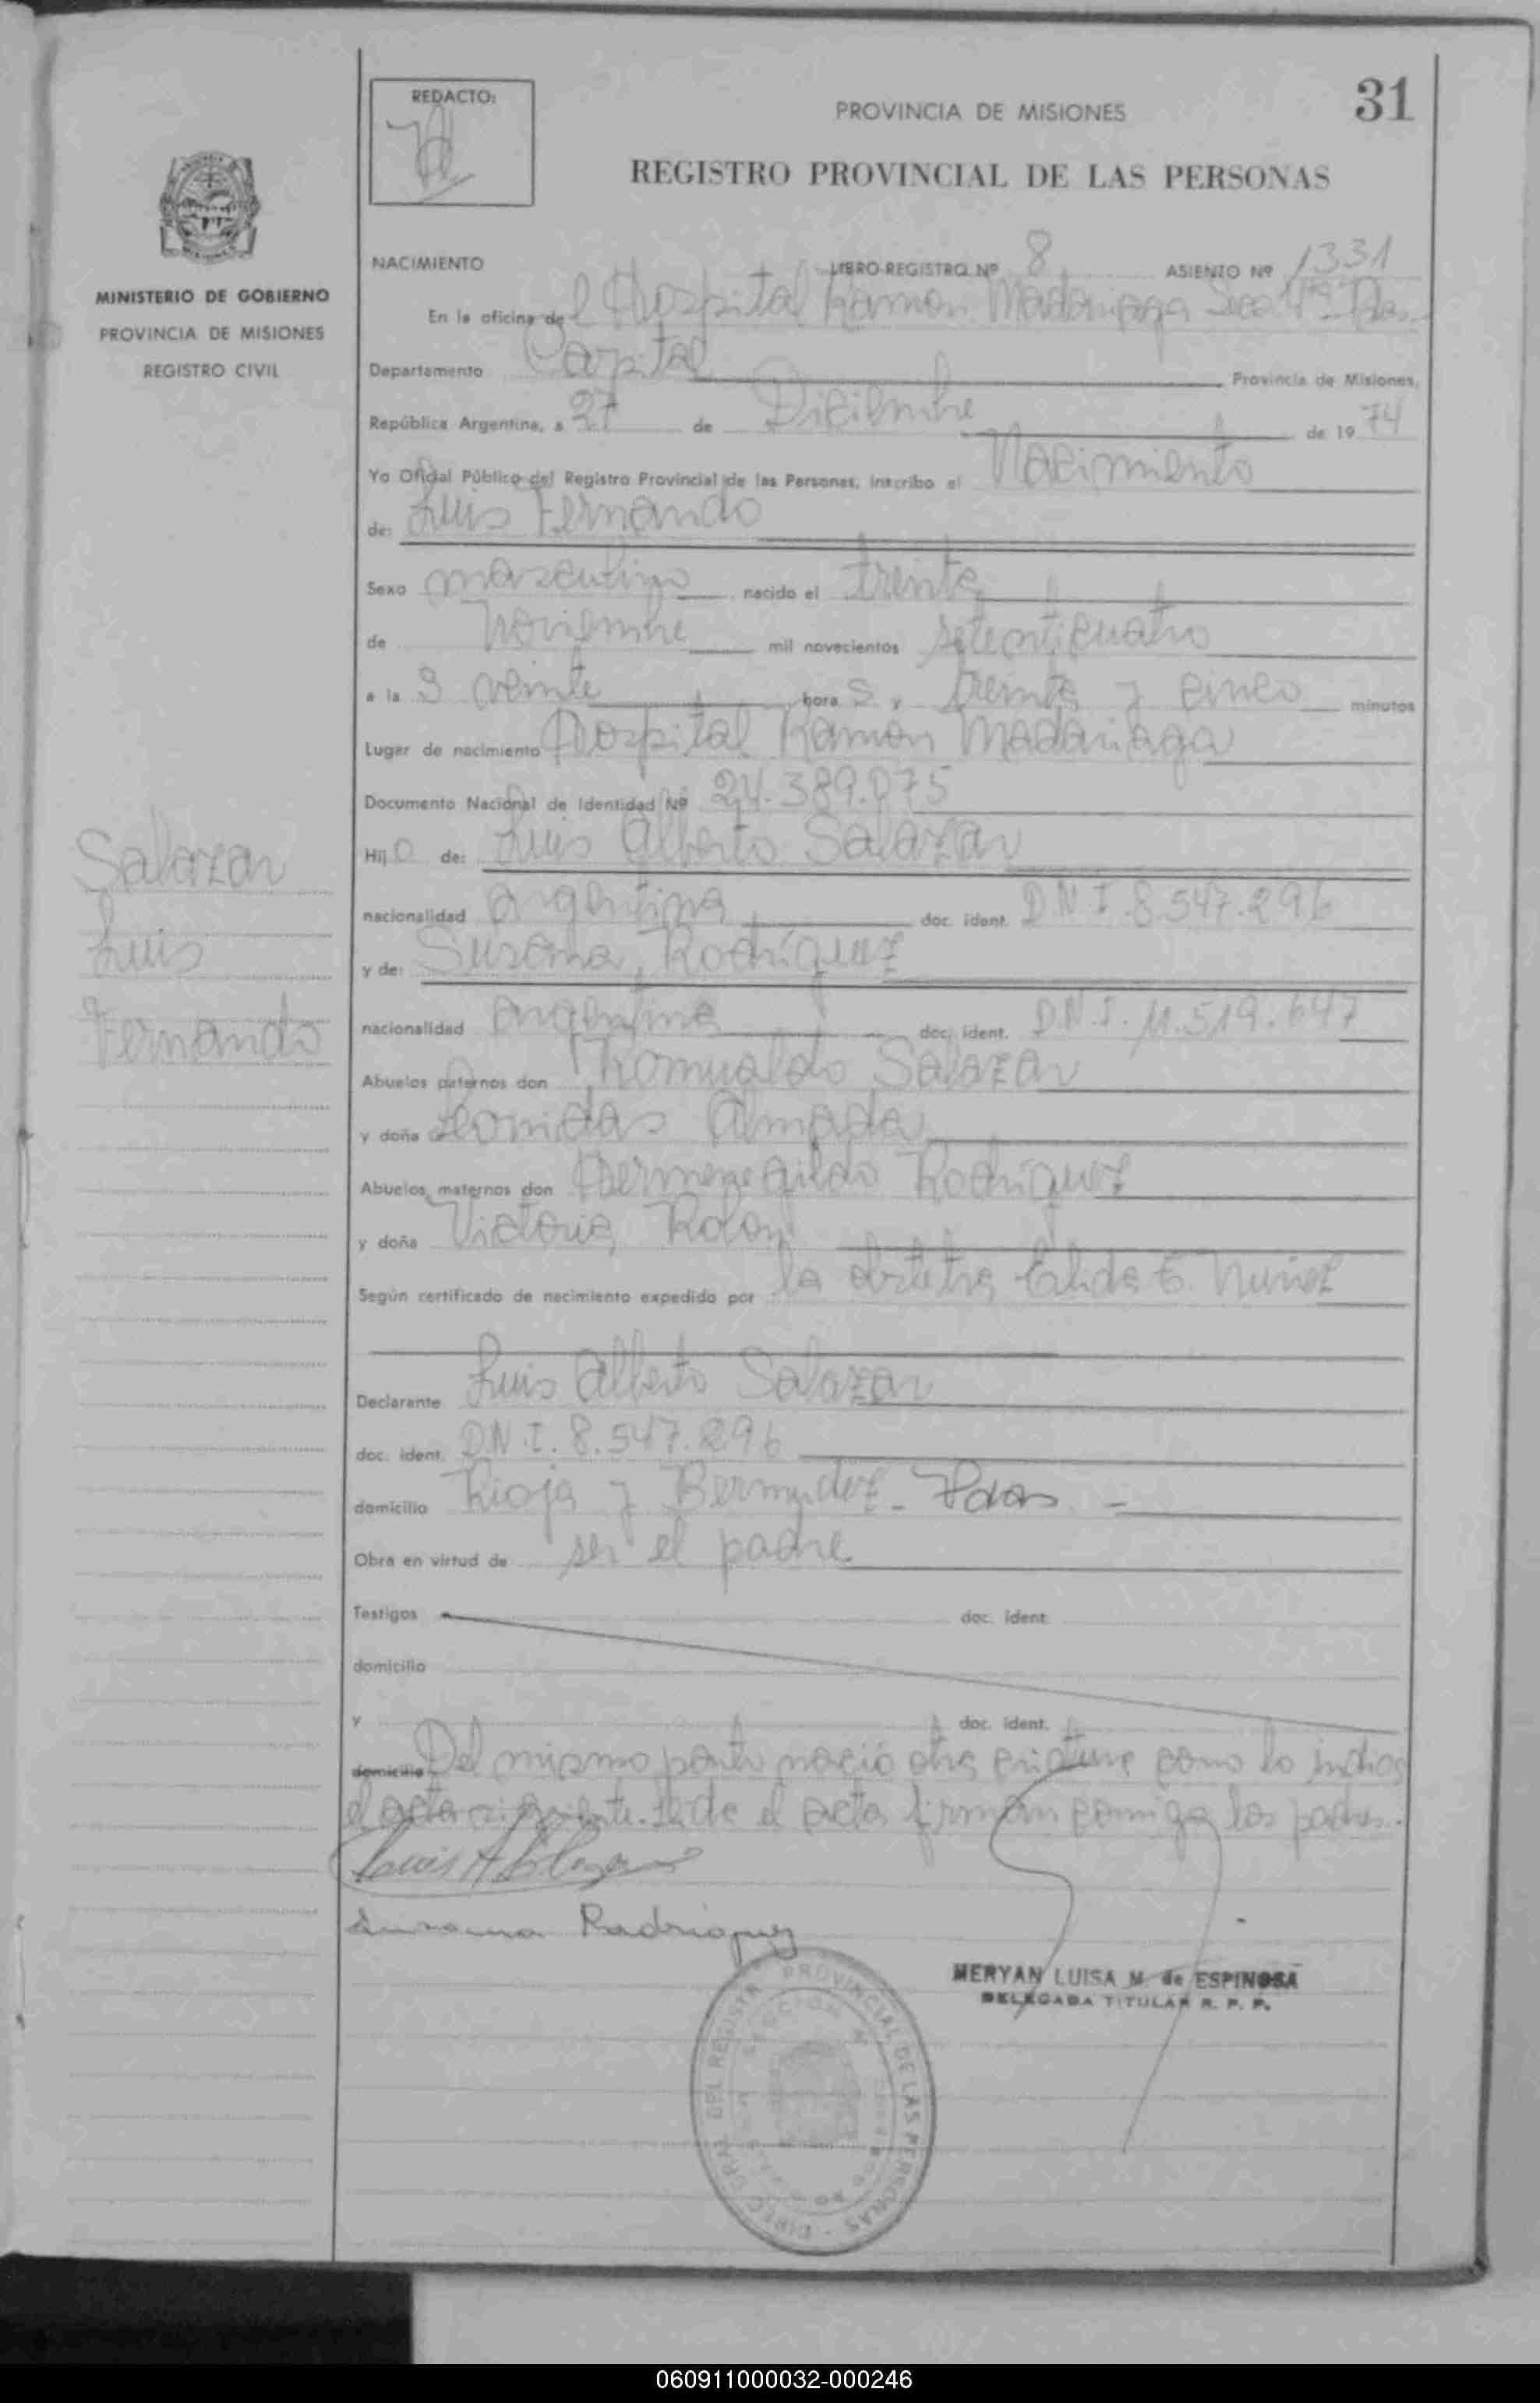 REDACTO:
PROVINCIA DE MISIONES
31
REGISTRO PROVINCIAL DE LAS PERSONAS
MINISTERIO DE GOBIERNO
PROVINCIA DE MISIONES
REGISTRO CIVIL
NACIMIENTO LIBRO-REGISTRO Nº 8 ASIENTO Nº 1331
En la oficina del Hospital Ramon Madariaga Secc 4ta Pdas.
Departamento Capital Provincia de Misiones,
República Argentina, a 27 de Diciembre de 19 74
Yo Oficial Público del Registro Provincial de las Personas, inscribo el Nacimiento
de: Luis Fernando
Sexo masculino nacido el treinta
de Noviembre mil novecientos setenticuatro
a la s veinte hora s y treinta y cinco minutos
Lugar de nacimiento Hospital Ramon Madariaga
Documento Nacional de Identidad Nº 24.389.075
Hij o de: Luis Alberto Salazar
nacionalidad argentina doc. ident. D.N.I 8.547.296
y de: Susana Rodriguez
nacionalidad argentina doc. ident. D.N.I. 11.519.647
Abuelos paternos don Romualdo Salazar
y doña Leonidas Almada
Abuelos maternos don Hermenegildo Rodriguez
y doña Victoria Rolon
Según certificado de nacimiento expedido por la obstetra Elida E. Nuñez
Declarante Luis Alberto Salazar
doc. ident. D.N.I. 8.547.296
domicilio Rioja y Bermudez - Pdas -
Obra en virtud de ser el padre
Testigos doc. ident.
domicilio
y doc. ident.
domicilio Del mismo parto nació otra criatura como lo indica
el acta siguiente. Leida el acta firman conmigo los padres.
Salazar
Luis
Fernando
Susana Rodriguez
MERYAN LUISA M. de ESPINOSA
DELEGADA TITULAR R. P. P.
DIREC. GRAL. DEL REGISTR. PROVINCIAL DE LAS PERSONAS
060911000032-000246